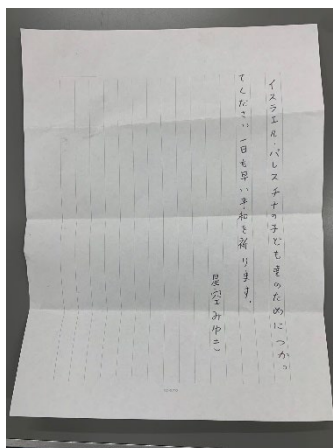 イスラエル・パレスチナの子ども達のためにつかっ
てください。一日も早い平和を祈ります。
星空みゆこ